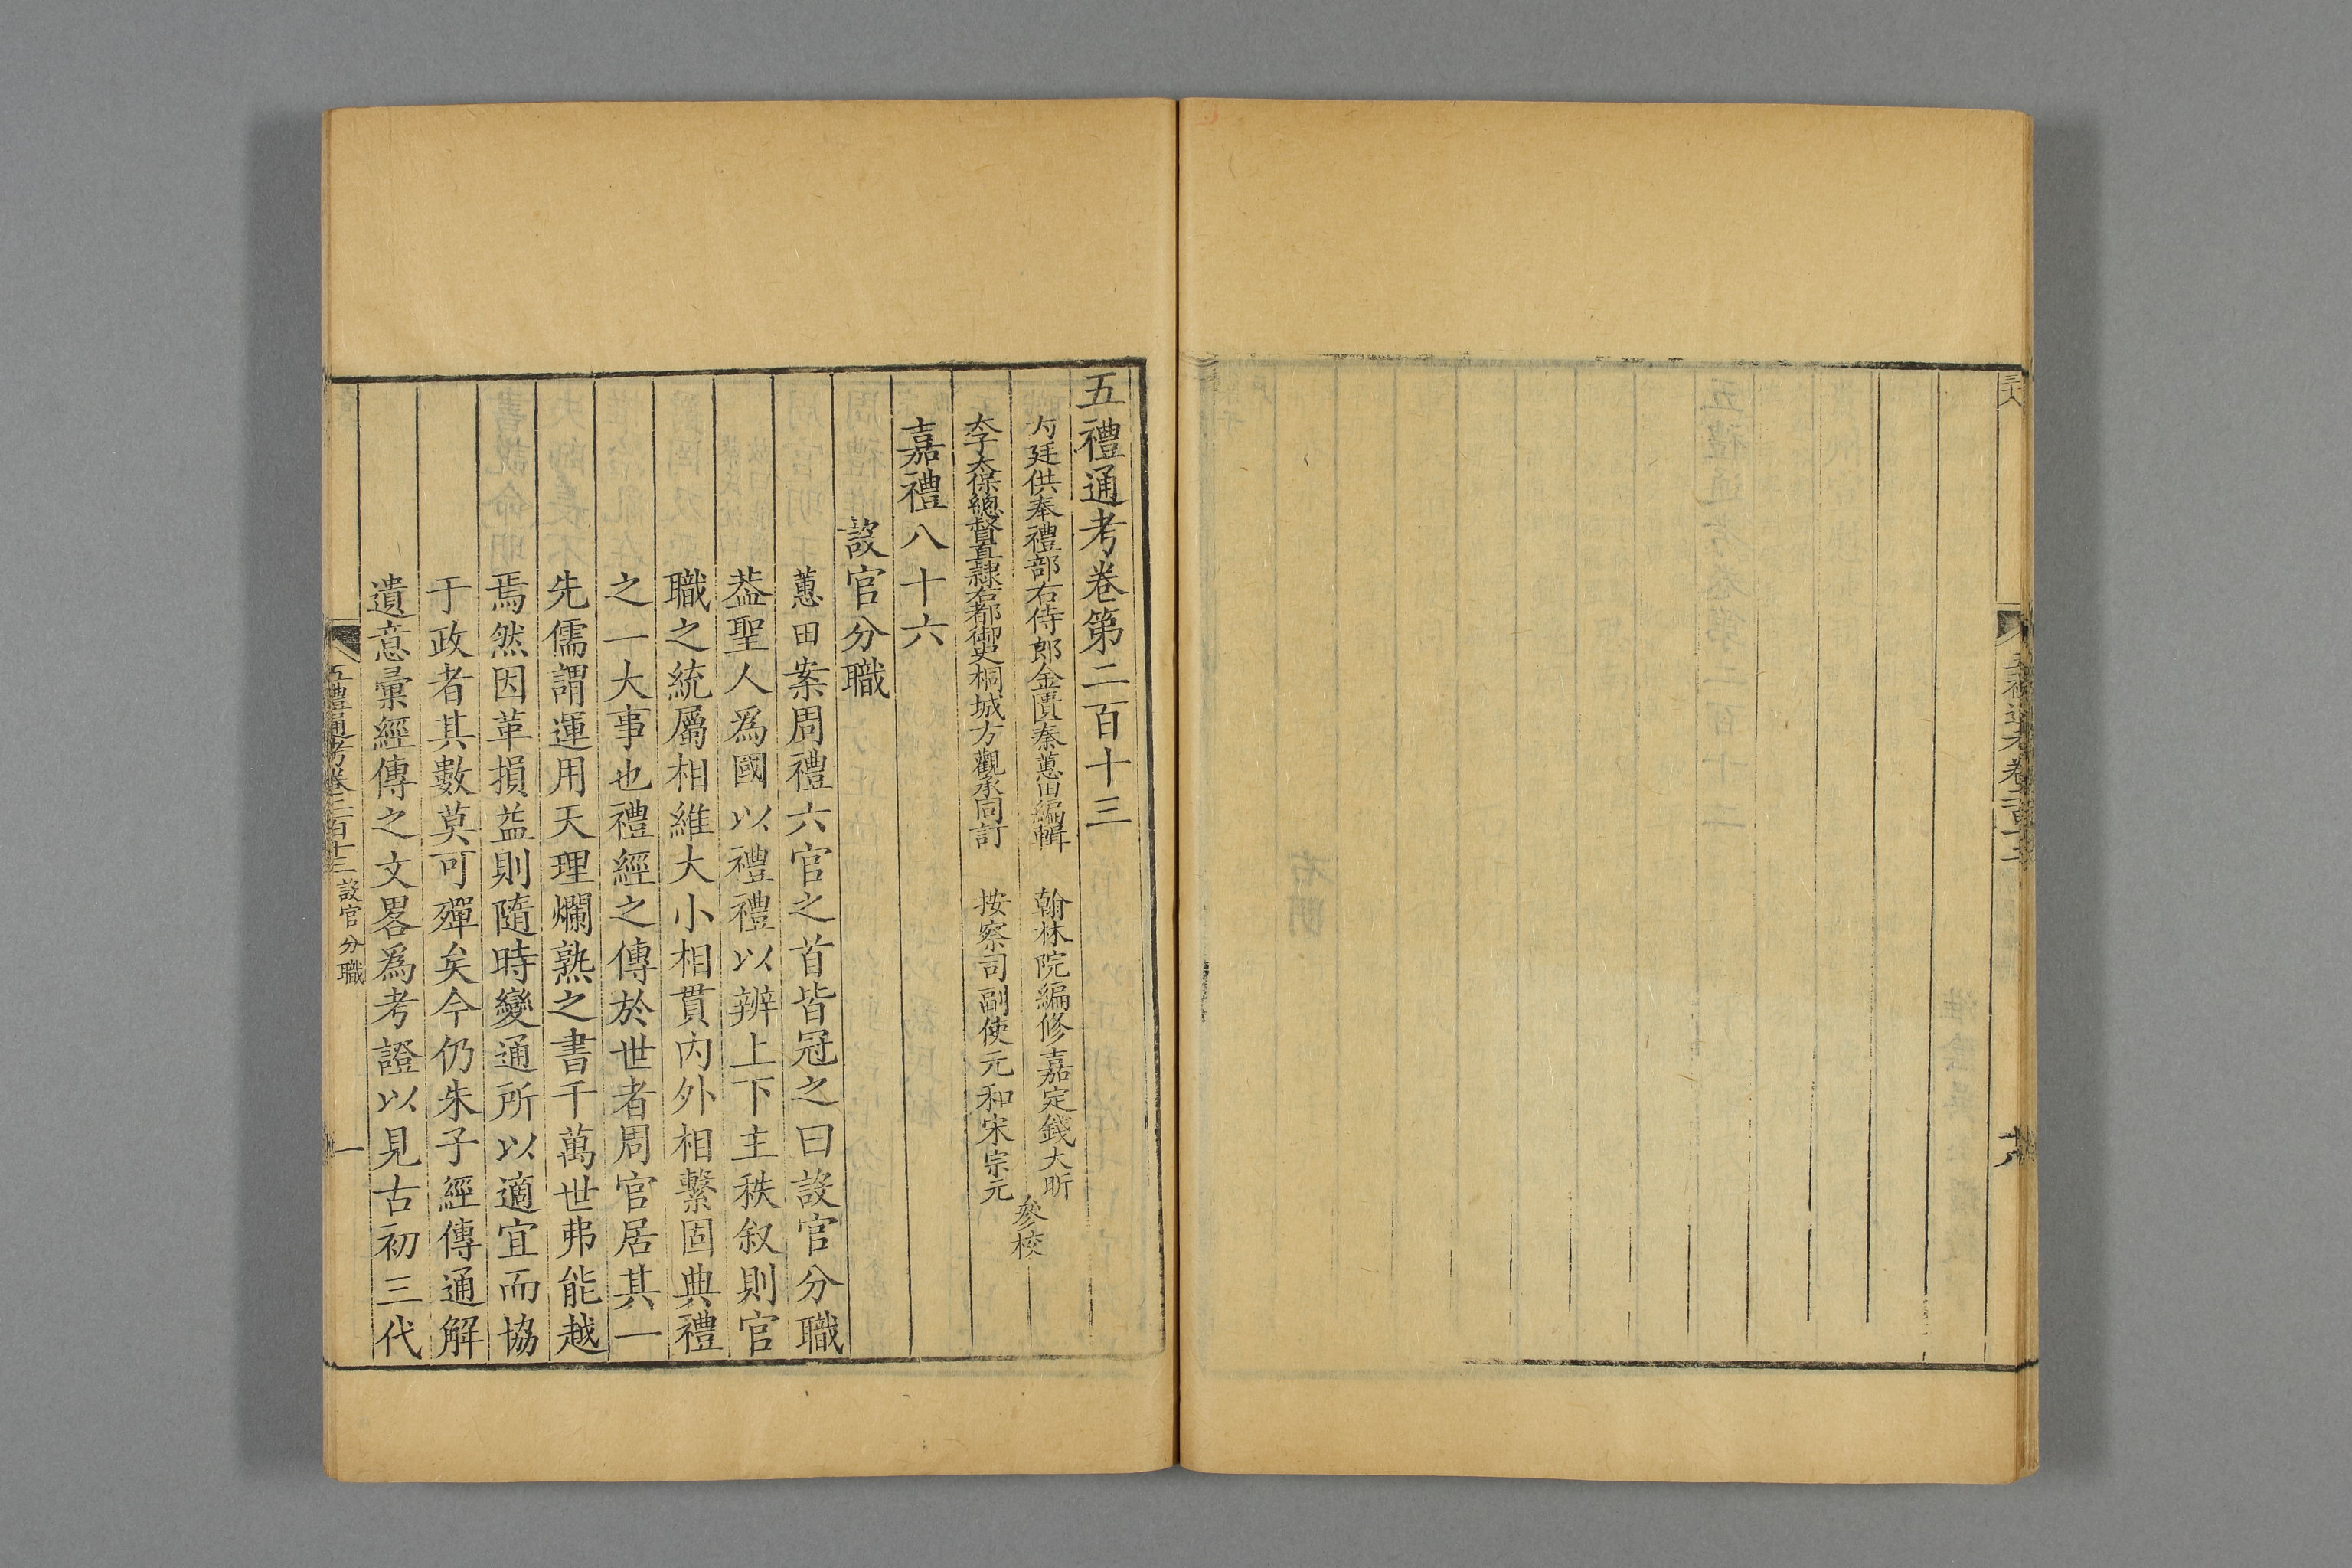 五禮通考卷第二百十三
內廷供奉禮部右侍郎金匱秦蕙田編輯
太子太保總督直隸右都御史桐城方觀承同訂
翰林院編修嘉定錢大昕
按察司副使元和宋宗元
參校
嘉禮八十六
設官分職
蕙田案周禮六官之首皆冠之曰設官分職
葢聖人爲國以禮禮以辨上下主秩叙則官
職之統屬相維大小相貫內外相繫固典禮
之一大事也禮經之傳於世者周官居其一
先儒謂運用天理爛熟之書千萬世弗能越
焉然因革損益則隨時變通所以適宜而協
于政者其數莫可殫矣今仍朱子經傳通解
遺意彙經傳之文畧爲考證以見古初三代
五禮通考卷二百十三 設官分職
一